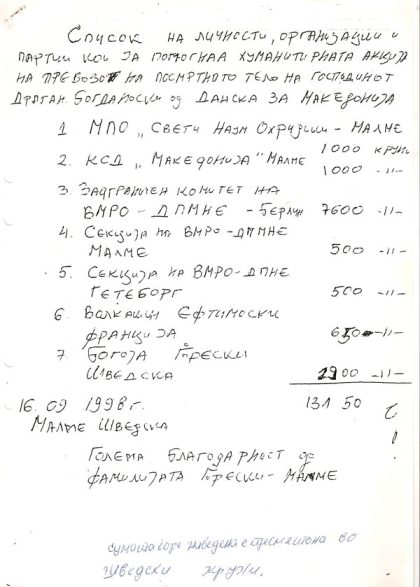 Список на личности, организации и
партии кои ја помогнаа хуманитарната акција
на превозот на посмртното тело на господинот
Драган Богдановски од Данска за Македонија
1 МПО „Свети Наум Охридски - Малме
1000 круни
2. КСД „Македонија" Малме 1000 -11-
3. Задграничен комитет на
ВМРО - ДПМНЕ - Берлин 7600 -11-
4. Секција на ВМРО-ДПМНЕ
Малме 500 -11-
5. Секција на ВМРО-ДПНЕ
Гетеборг 500 -11-
6. Волкашин Ефтимоски
Франција 650 -11-
7. Богоја Горески
Шведска 1900 -11-
16.09 1998 г. 131 50
Малме Шведска
Голема благодарност од
фамилијата Горески - Малме
сумата горе наведена е пресметана во
Шведски круни.